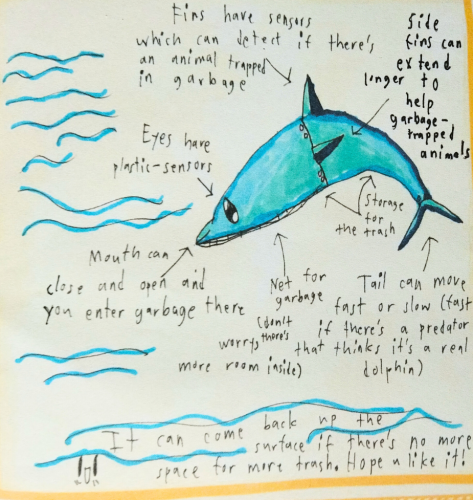 Fins have sensors
which can detect if there's
an animal trapped
in garbage
Side
fins can
extend
longer to
help
garbage-
trapped
animals
Eyes have
plastic-sensors
Storage
for
the trash
Mouth can
close and open and
you enter garbage there
Net for
garbage
(don't
worry there's
more room inside)
Tail can move
fast or slow (fast
if there's a predator
that thinks it's a real
dolphin)
It can come back up the
surface if there's no more
space for more trash. Hope u like it!